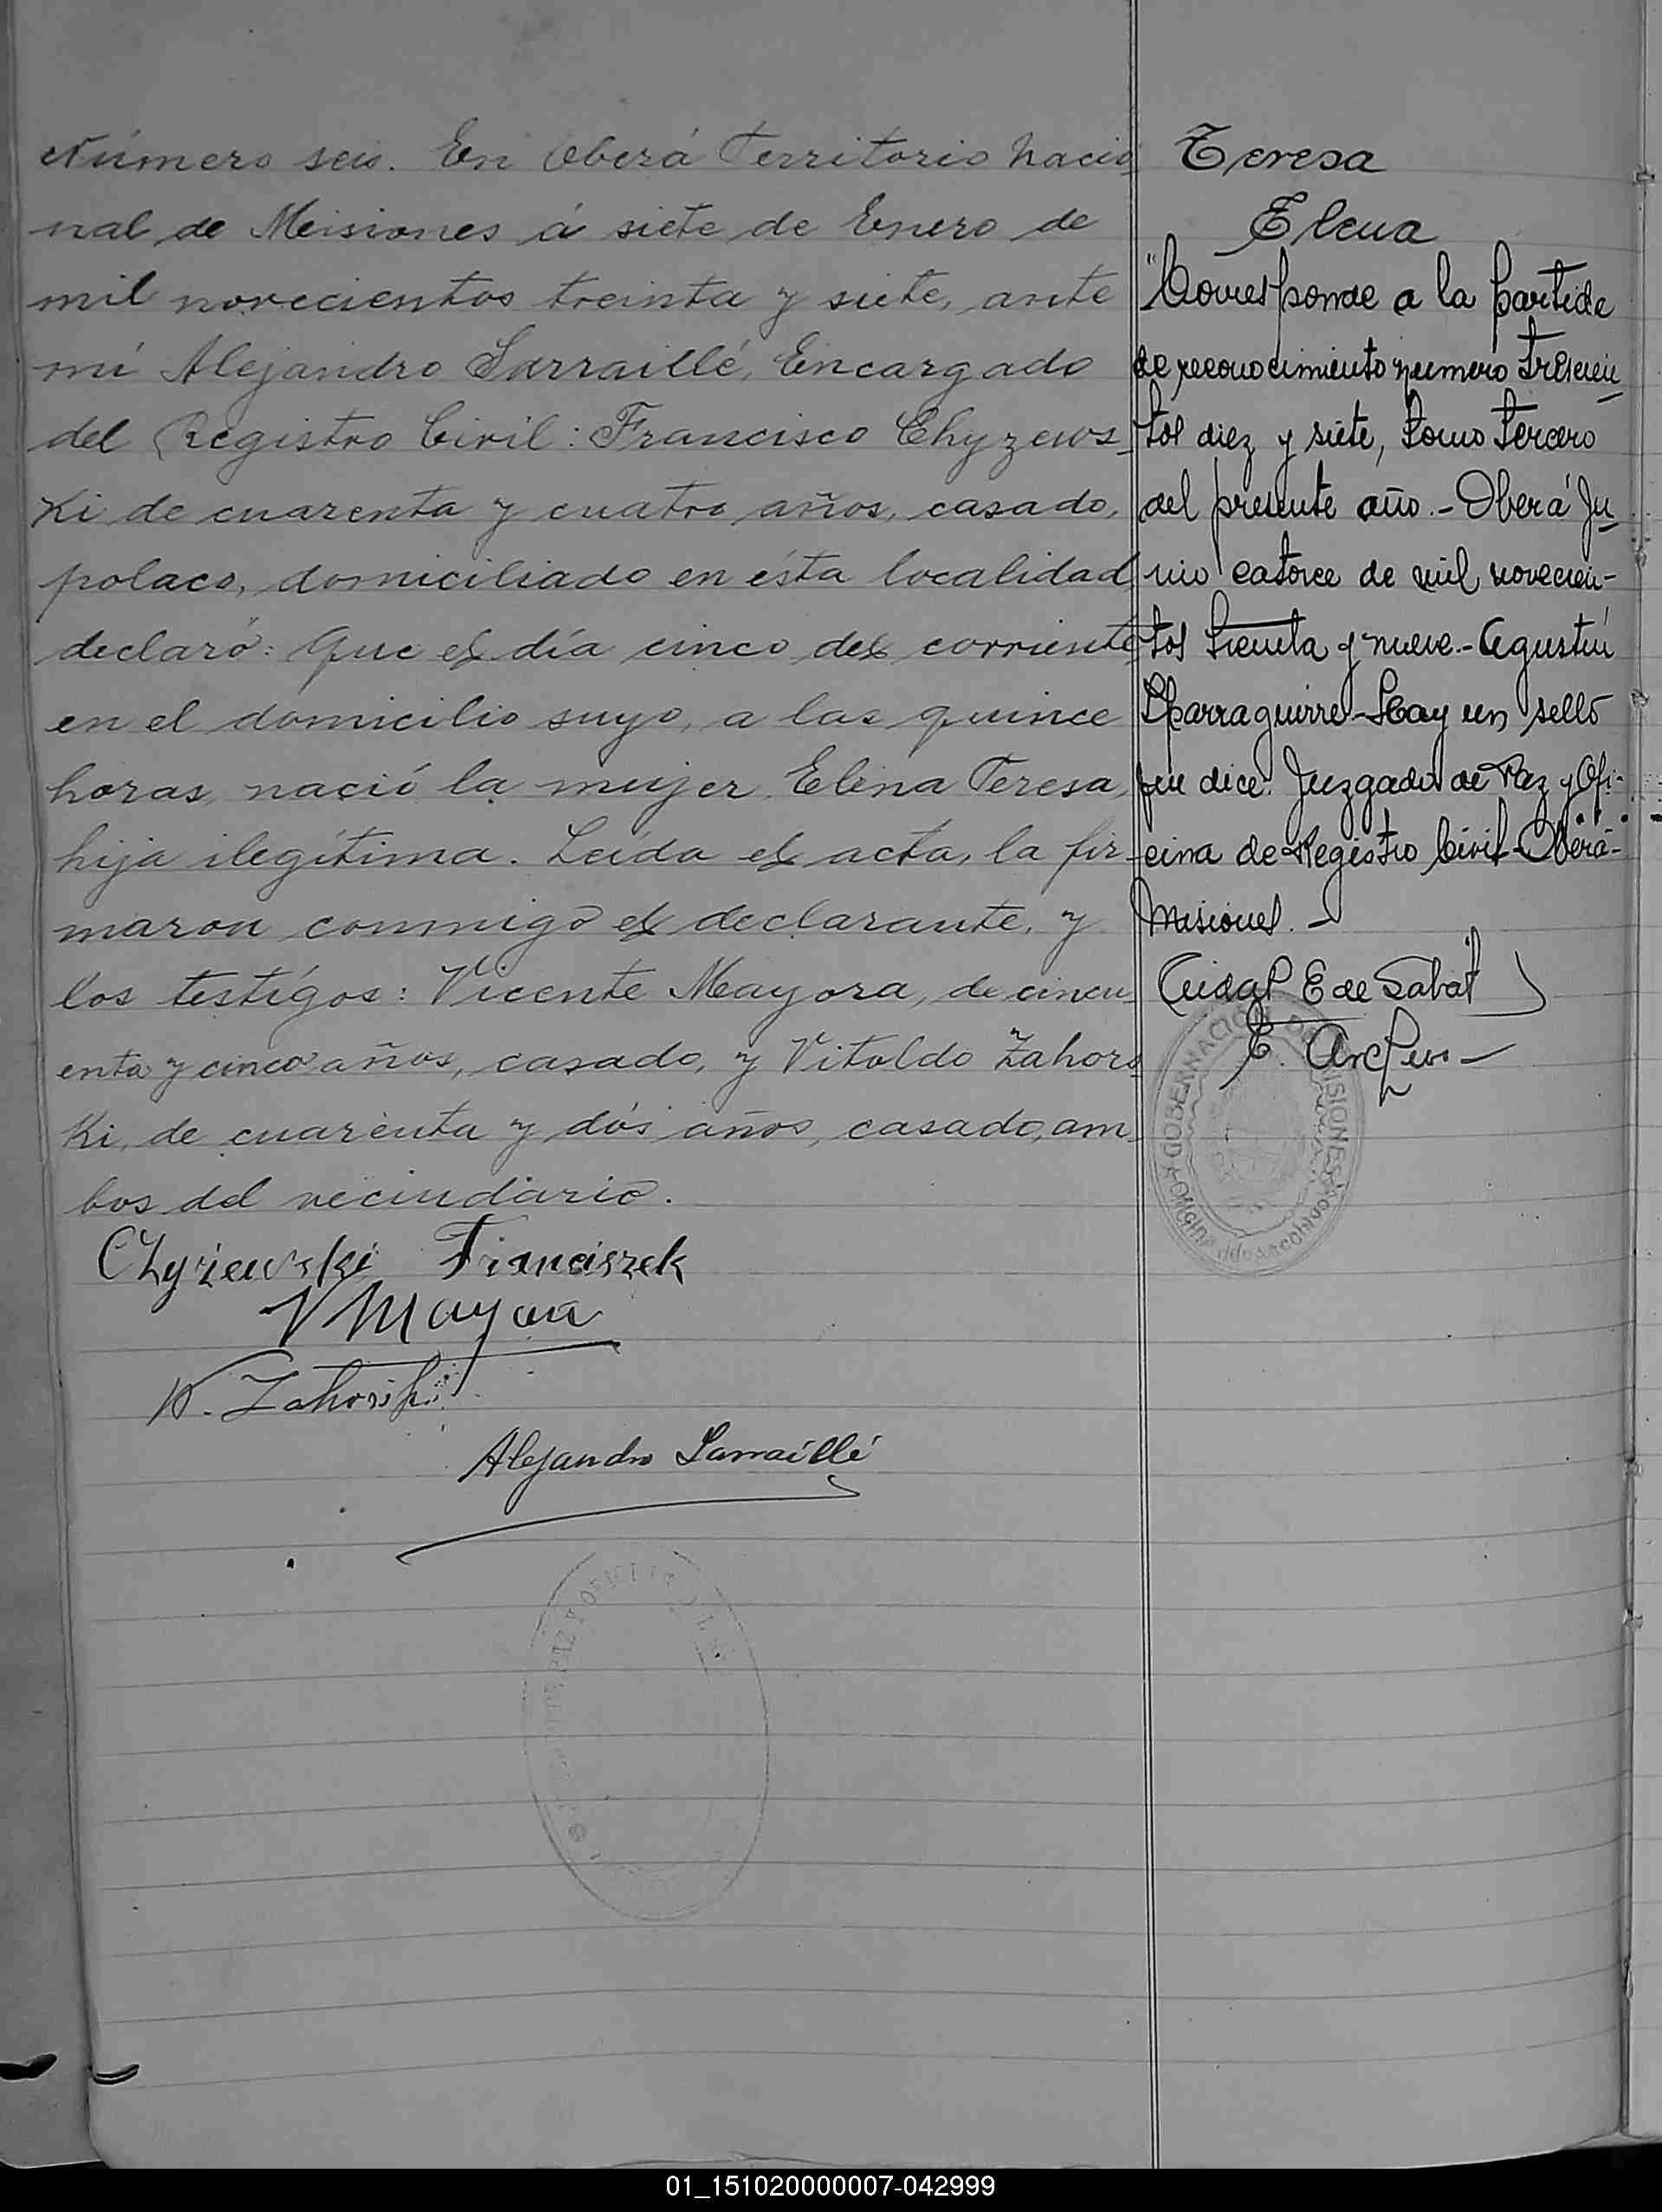 Número seis. En Oberá Territorio Nacio
nal de Meisiones á siete de Enero de
mil novecientos treinta y siete, ante
mí Alejandro Sarraillé, Encargado
del Registro Civil: Francisco Chyzews-
ki de cuarenta y cuatro años, casado,
polaco, domiciliado en ésta localidad,
declaró: Que el día cinco del corriente,
en el domicilio suyo, a las quince
horas, nació la mujer Elena Teresa,
hija ilegítima. Leída el acta, la fir-
maron conmigo el declarante, y
los testígos: Vicente Mayora, de cincu
enta y cinco años, casado, y Vitoldo Zahors
ki, de cuarenta y dós años, casado, am
bos del vecindario.
Chyżewski Franciszek
V Mayora
W. Zahorski
Alejandro Sarraillé
PAZ Y OFICI
Teresa
Elena
"Corresponde a la partida
de reconocimiento número trescien
tos diez y siete, tomo tercero
del presente año.- Oberá Ju
nio catorce de mil novecien-
tos treinta y nueve.- Agustín
Yparraguirre- Hay un sello
que dice: Juzgado de Paz y Ofi-
cina de Registro Civil- Oberá-
Misiones.-
E de Sabat
E.
GOBERNACIÓN DE MISIONES
01_151020000007-042999